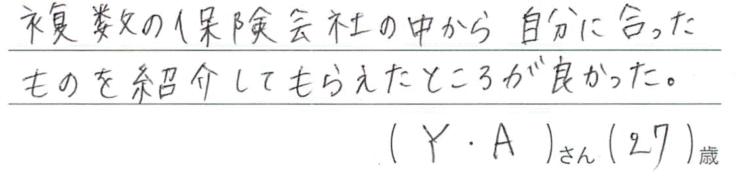 複数の保険会社の中から 自分に合った
ものを紹介してもらえたところが良かった。
(Y・A)さん(27)歳